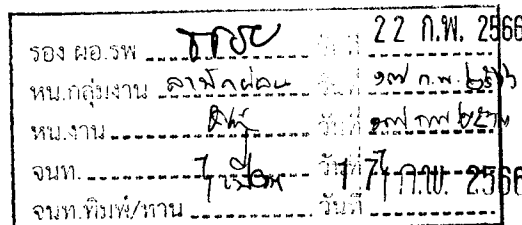 รอง ผอ.รพ วันที่ 22 ก.พ. 2566
หน.กลุ่มงาน ลาพักผ่อน วันที่ ๑๗ ก.พ. ๒๕๖๖
หน.งาน วันที่ ๑๗ กพ ๒๕๖๖
จนท. วันที่ 17 ก.พ. 2566
จนท.พิมพ์/ทาน วันที่